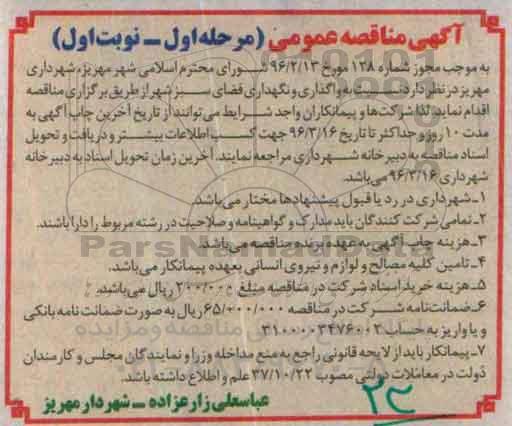 آگهی مناقصه عمومی (مرحله اول ـ نوبت اول)
به موجب مجوز شماره ۱۲۸ مورخ ۹۶/۲/۱۳ شورای محترم اسلامی شهر مهریز، شهرداری
مهریز در نظر دارد نسبت به واگذاری و نگهداری فضای سبز شهر از طریق برگزاری مناقصه
اقدام نماید. لذا شرکت‌ها و پیمانکاران واجد شرایط می‌توانند از تاریخ آخرین چاپ آگهی به
مدت ۱۰ روز و حداکثر تا تاریخ ۹۶/۳/۱۶ جهت کسب اطلاعات بیشتر و دریافت و تحویل
اسناد مناقصه به دبیرخانه شهرداری مراجعه نمایند. آخرین زمان تحویل اسناد به دبیرخانه
شهرداری ۹۶/۳/۱۶ می‌باشد.
۱ـ شهرداری در رد یا قبول پیشنهادها مختار می‌باشد.
۲ـ تمامی شرکت کنندگان باید مدارک و گواهینامه و صلاحیت در رشته مربوط را دارا باشند.
۳ـ هزینه چاپ آگهی به عهده برنده مناقصه می‌باشد.
۴ـ تامین کلیه مصالح و لوازم و نیروی انسانی بعهده پیمانکار می‌باشد.
۵ـ هزینه خرید اسناد شرکت در مناقصه مبلغ ۲۰۰/۰۰۰ ریال می‌باشد.
۶ـ ضمانت‌نامه شرکت در مناقصه ۶۵/۰۰۰/۰۰۰ ریال به صورت ضمانت‌نامه بانکی
و یا واریز به حساب ۳۱۰۰۰۰۳۴۷۶۰۰۲
۷ـ پیمانکار باید از لایحه قانونی راجع به منع مداخله وزرا و نمایندگان مجلس و کارمندان
دولت در معاملات دولتی مصوب ۳۷/۱۰/۲۲ علم و اطلاع داشته باشد.
عباسعلی زارعزاده ـ شهردار مهریز
۲۳
ParsNamadData